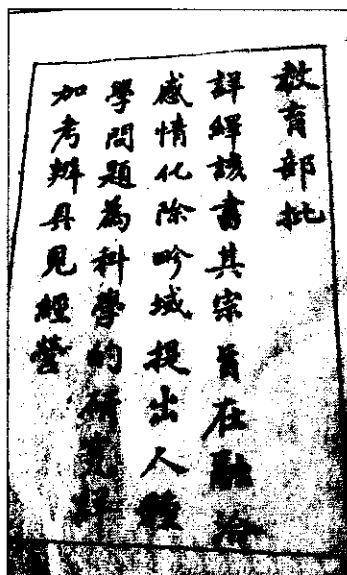 教育部批
詳繹該書其宗旨在融洽
感情化除畛域提出人種
學問題為科學的研究詳
加考辨具見經營